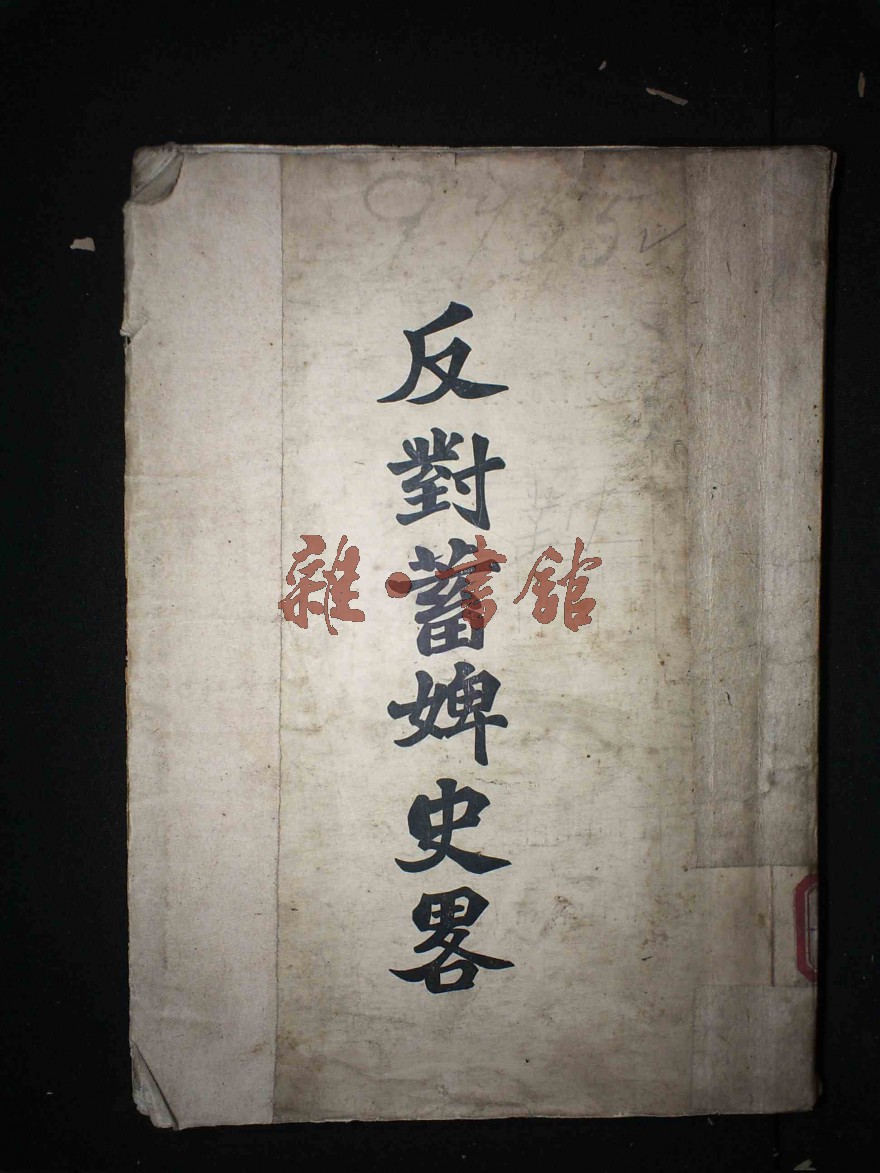 反對蓄婢史畧
雜·書館